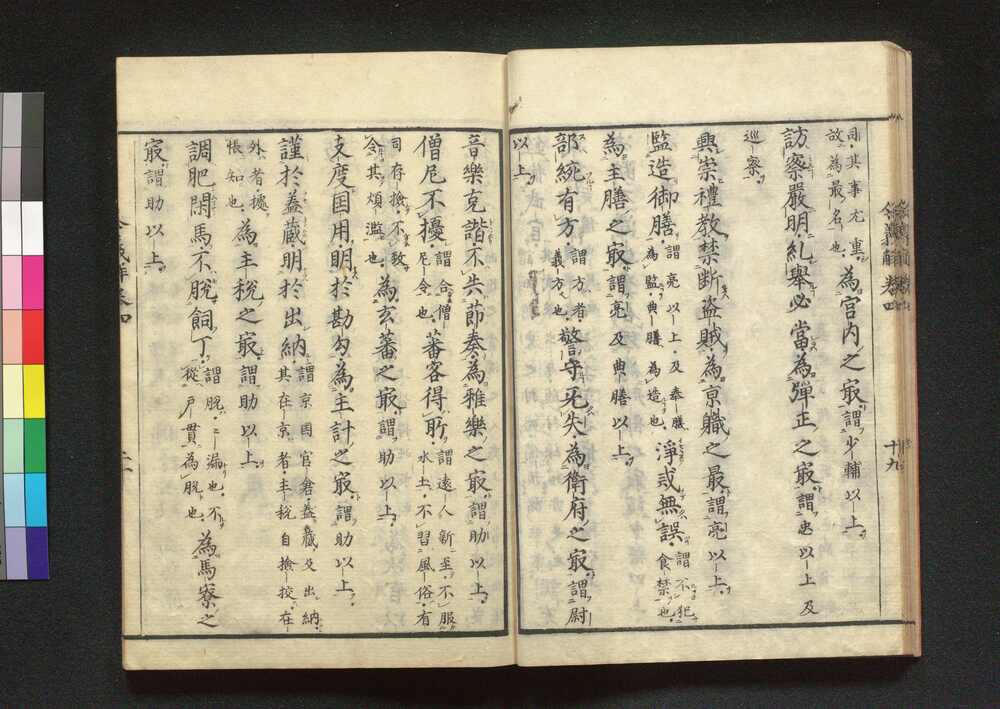 司。其事尤重。故為最名也。為宮内之冣。謂。少輔以上。
訪察嚴明。糺舉必當。為彈正之冣。謂。忠以上及
巡察。
興崇禮教。禁断盗賊。為京職之最。謂。亮以上。
監造御膳。謂。亮以上。及奉膳為監。典膳為造也。淨戒無誤。謂。不犯食禁也。
為主膳之冣。謂。亮及典膳以上。
部統有方。謂。方者。義方也。警守无失。為衛府之冣。謂。尉
以上。
音樂克諧。不失節奏。為雅樂之冣。謂。助以上。
僧尼不擾。謂。合僧尼令。蕃客得所。謂。遠人新至。不服水土。不習風俗。有
司存撿不教令其煩濫也。為玄蕃之冣。謂。助以上。
支度国用。明於勘勾。為主計之冣。謂。助以上。
謹於蓋藏。明於出納。謂。京国官倉。蓋藏及出納。其在京者。主税自撿挍。在
外者。據帳知也。為主税之冣。謂。助以上。
調肥閑馬。不脱飼丁。謂。脱々漏也。不從戸貫為脱也。為馬寮之
冣。謂。助以上。
令義解 巻四
十九